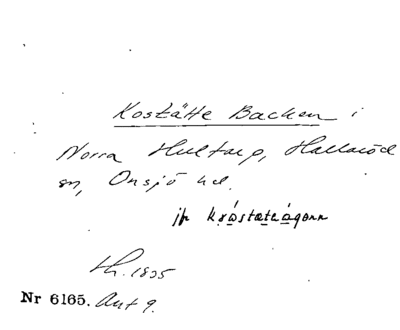 Kostätte Backen i
Norra Hultarp, Hallaröd
sn, Onsjö hd.
jfr
th. 1835
Nr 6165. Ant 9.